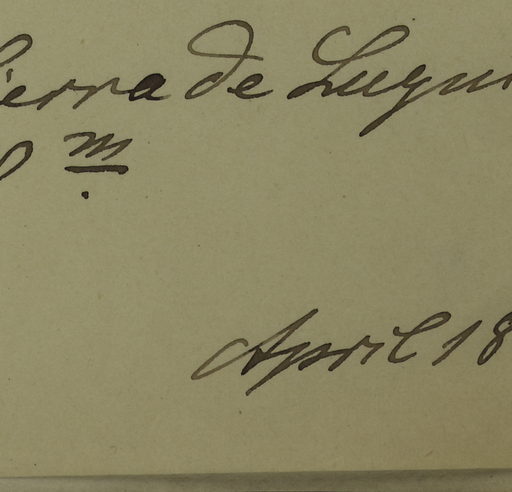 Sierra de Luqui
0 m.
April 18